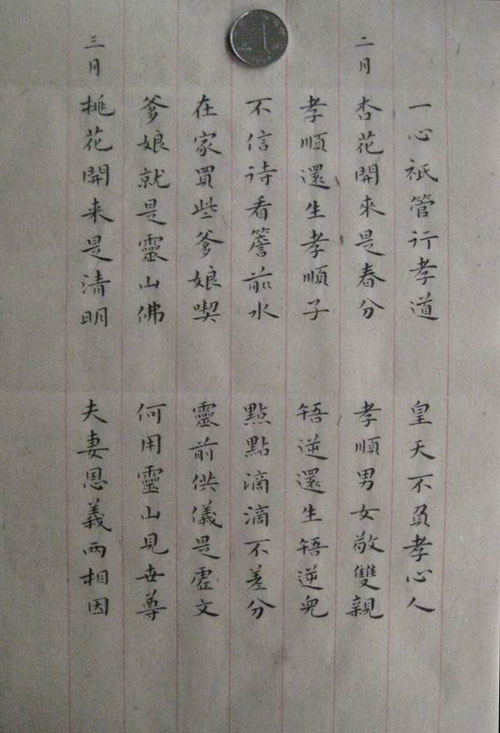 一心祇管行孝道　皇天不負孝心人
二月　杏花開來是春分　孝順男女敬雙親
孝順還生孝順子　牾逆還生牾逆兒
不信待看簷前水　點點滴滴不差分
在家買些爹娘喫　靈前供儀是虛文
爹娘就是靈山佛　何用靈山見世尊
三月　桃花開来是清明　夫妻恩義兩相因